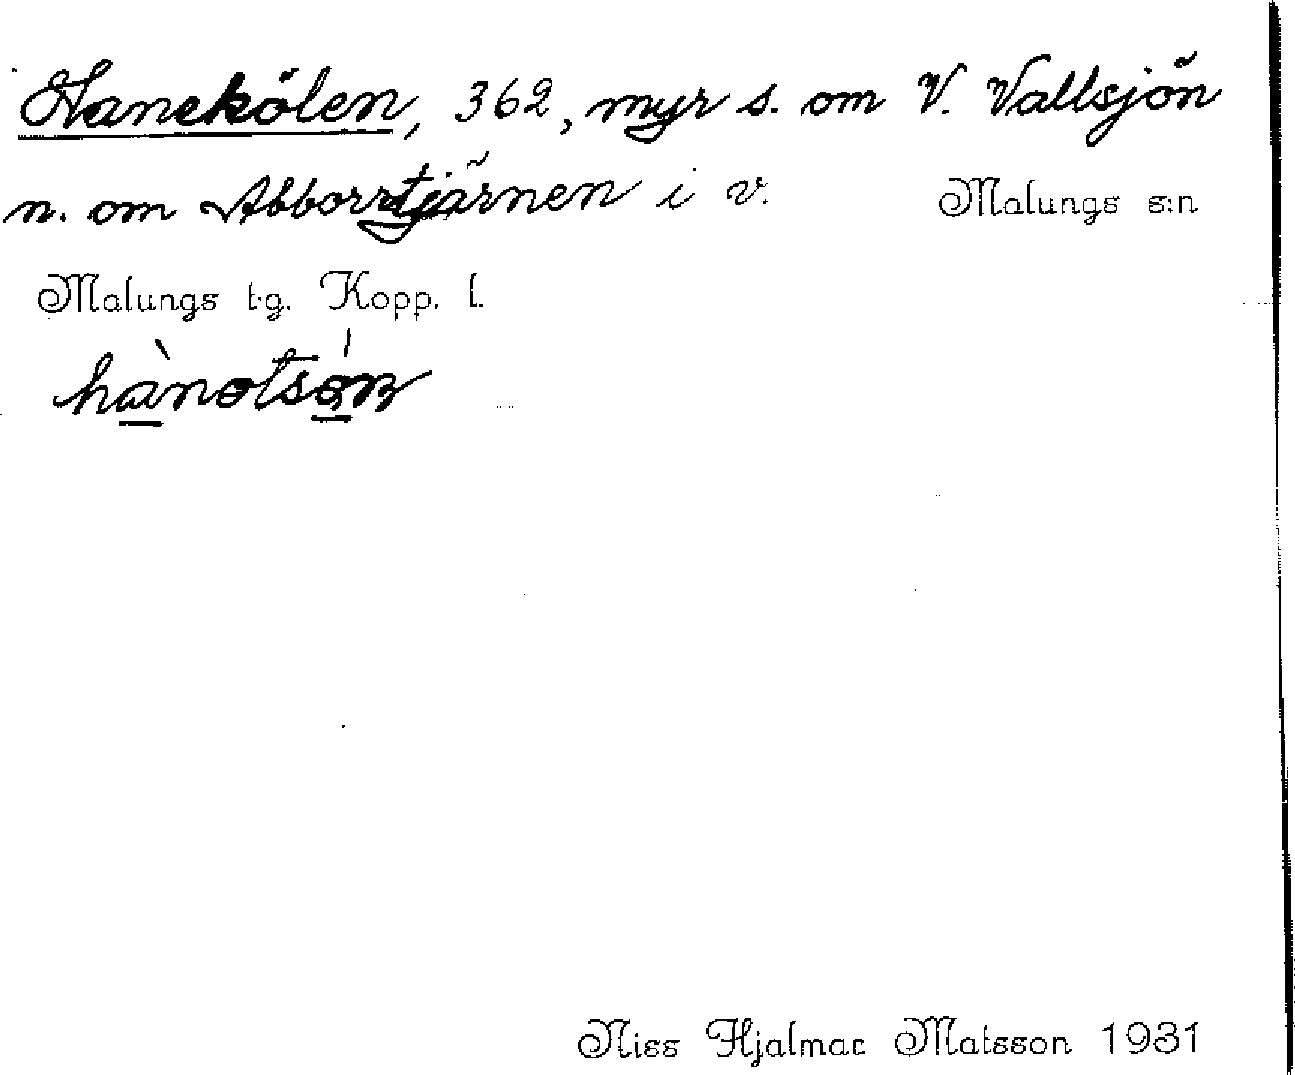 Hanekölen, 362, myr s. om V. Vallsjön
n. om Abborrtjärnen i v. Malungs s:n
Malungs t.g. Kopp. l.
Niss Hjalmar Matsson 1931